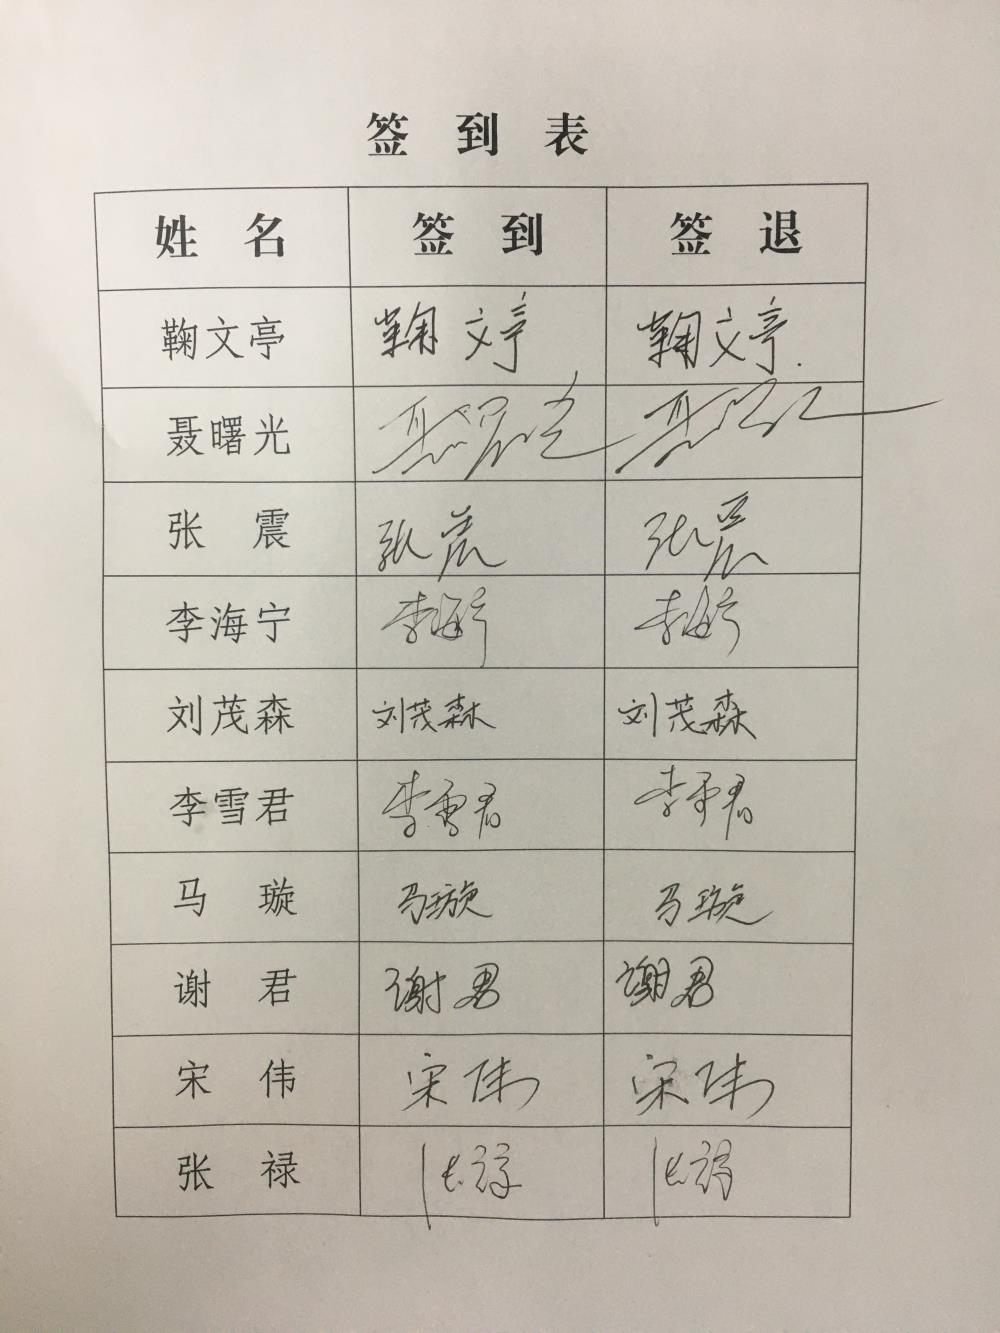 签 到 表
姓 名 签 到 签 退
鞠文亭 鞠文亭 鞠文亭
聂曙光 聂曙光 聂曙光
张 震 张震 张震
李海宁 李海宁 李海宁
刘茂森 刘茂森 刘茂森
李雪君 李雪君 李雪君
马 璇 马璇 马璇
谢 君 谢君 谢君
宋 伟 宋伟 宋伟
张 禄 张禄 张禄